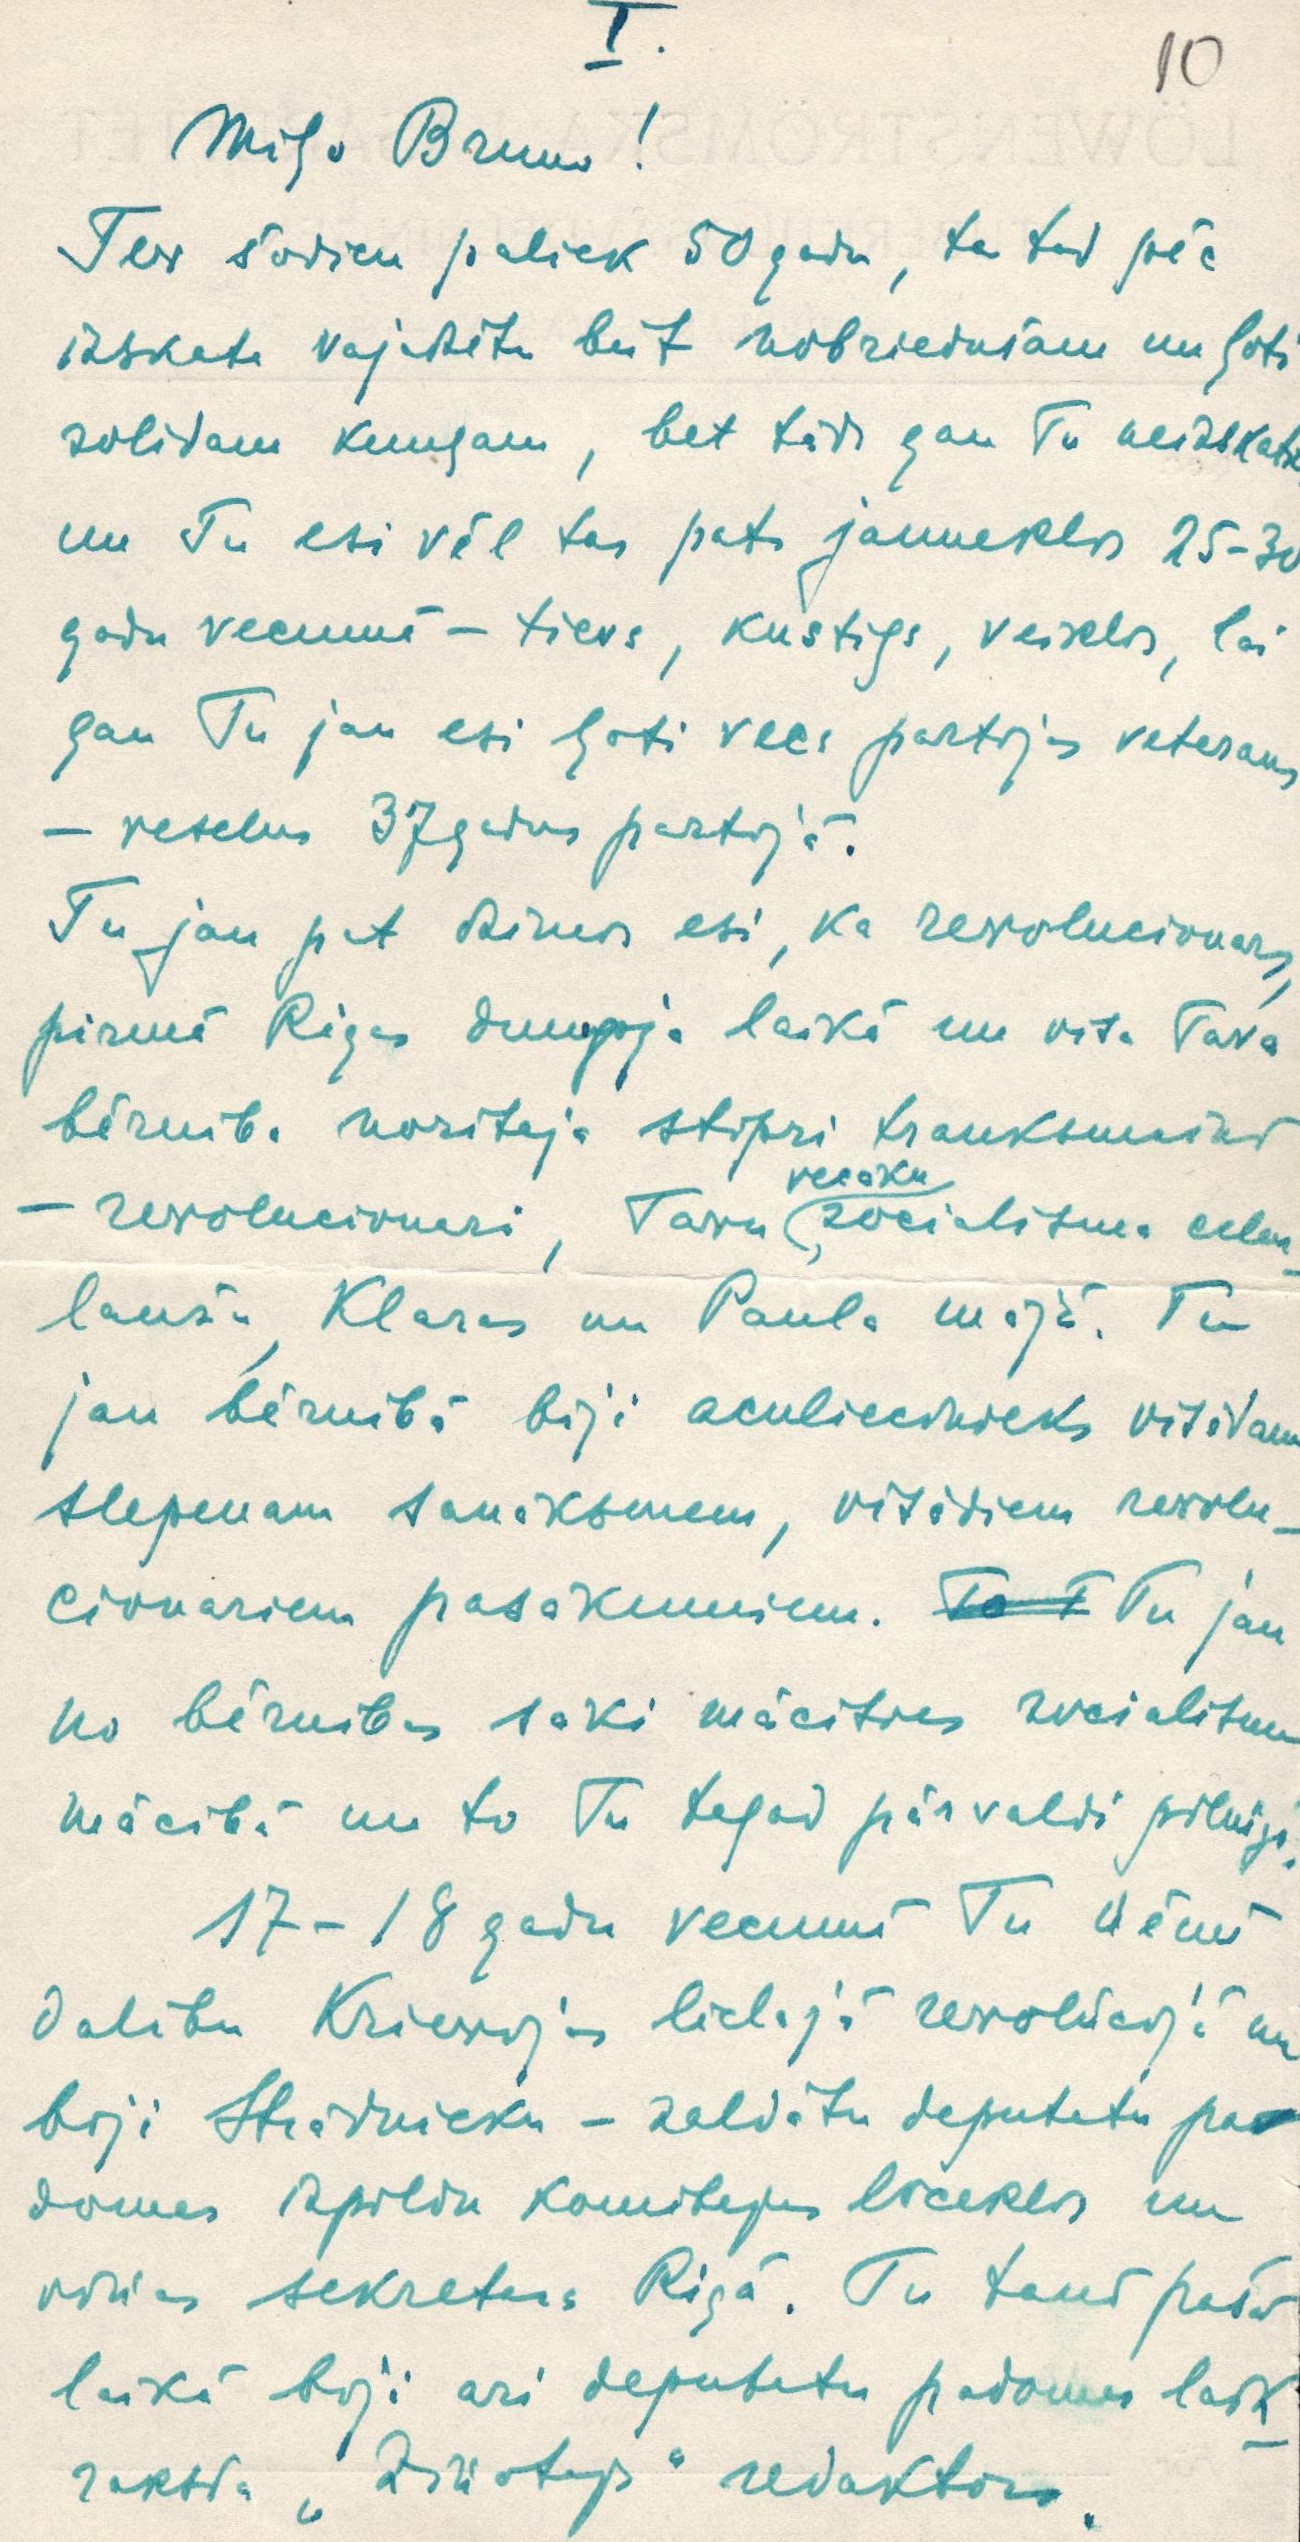 I.
10
Miļo Bruno!
Tev šodien paliek 50 gadu, ta tad pēc
izskata vajadzētu būt nobriedušam un ļoti
solidam kungam, bet tāds gan Tu neizskaties
un Tu esi vēl tas pats jauneklis 25-30
gadu vecumā – tievs, kustigs, veikls, lai
gan Tu jau esi ļoti vecs partijas veterans
– veselus 37 gadus partijā.
Tu jau pat dzimis esi, ka revolucionars,
pirmā Rigas dumpja laikā un visa Tava
bērniba noriteja stipri trauksmaini
– revolucionari, Tavu vecaku, socialisma celm-
laužu, Klaras un Paula majā. Tu
jau bērnibā biji aculiecinieks visādam
slepenam sanāksmem, visādiem revolu-
cionariem pasākumiem. Tu jau
no bērnibas sāki mācities socialisma
mācibā un to Tu tagad pārvaldi pilnigi.
17-18 gadu vecumā Tu ņēmi
dalibu Krievijas lielajā revolūcijā un
biji Strādnieku – zaldātu deputatu pa
domes izpildu komitejas loceklis un
vinas sekretars Rigā. Tu tanī pašā
laikā biji ari deputatu padomes laik-
raksta „Ziņotajs" redaktors.